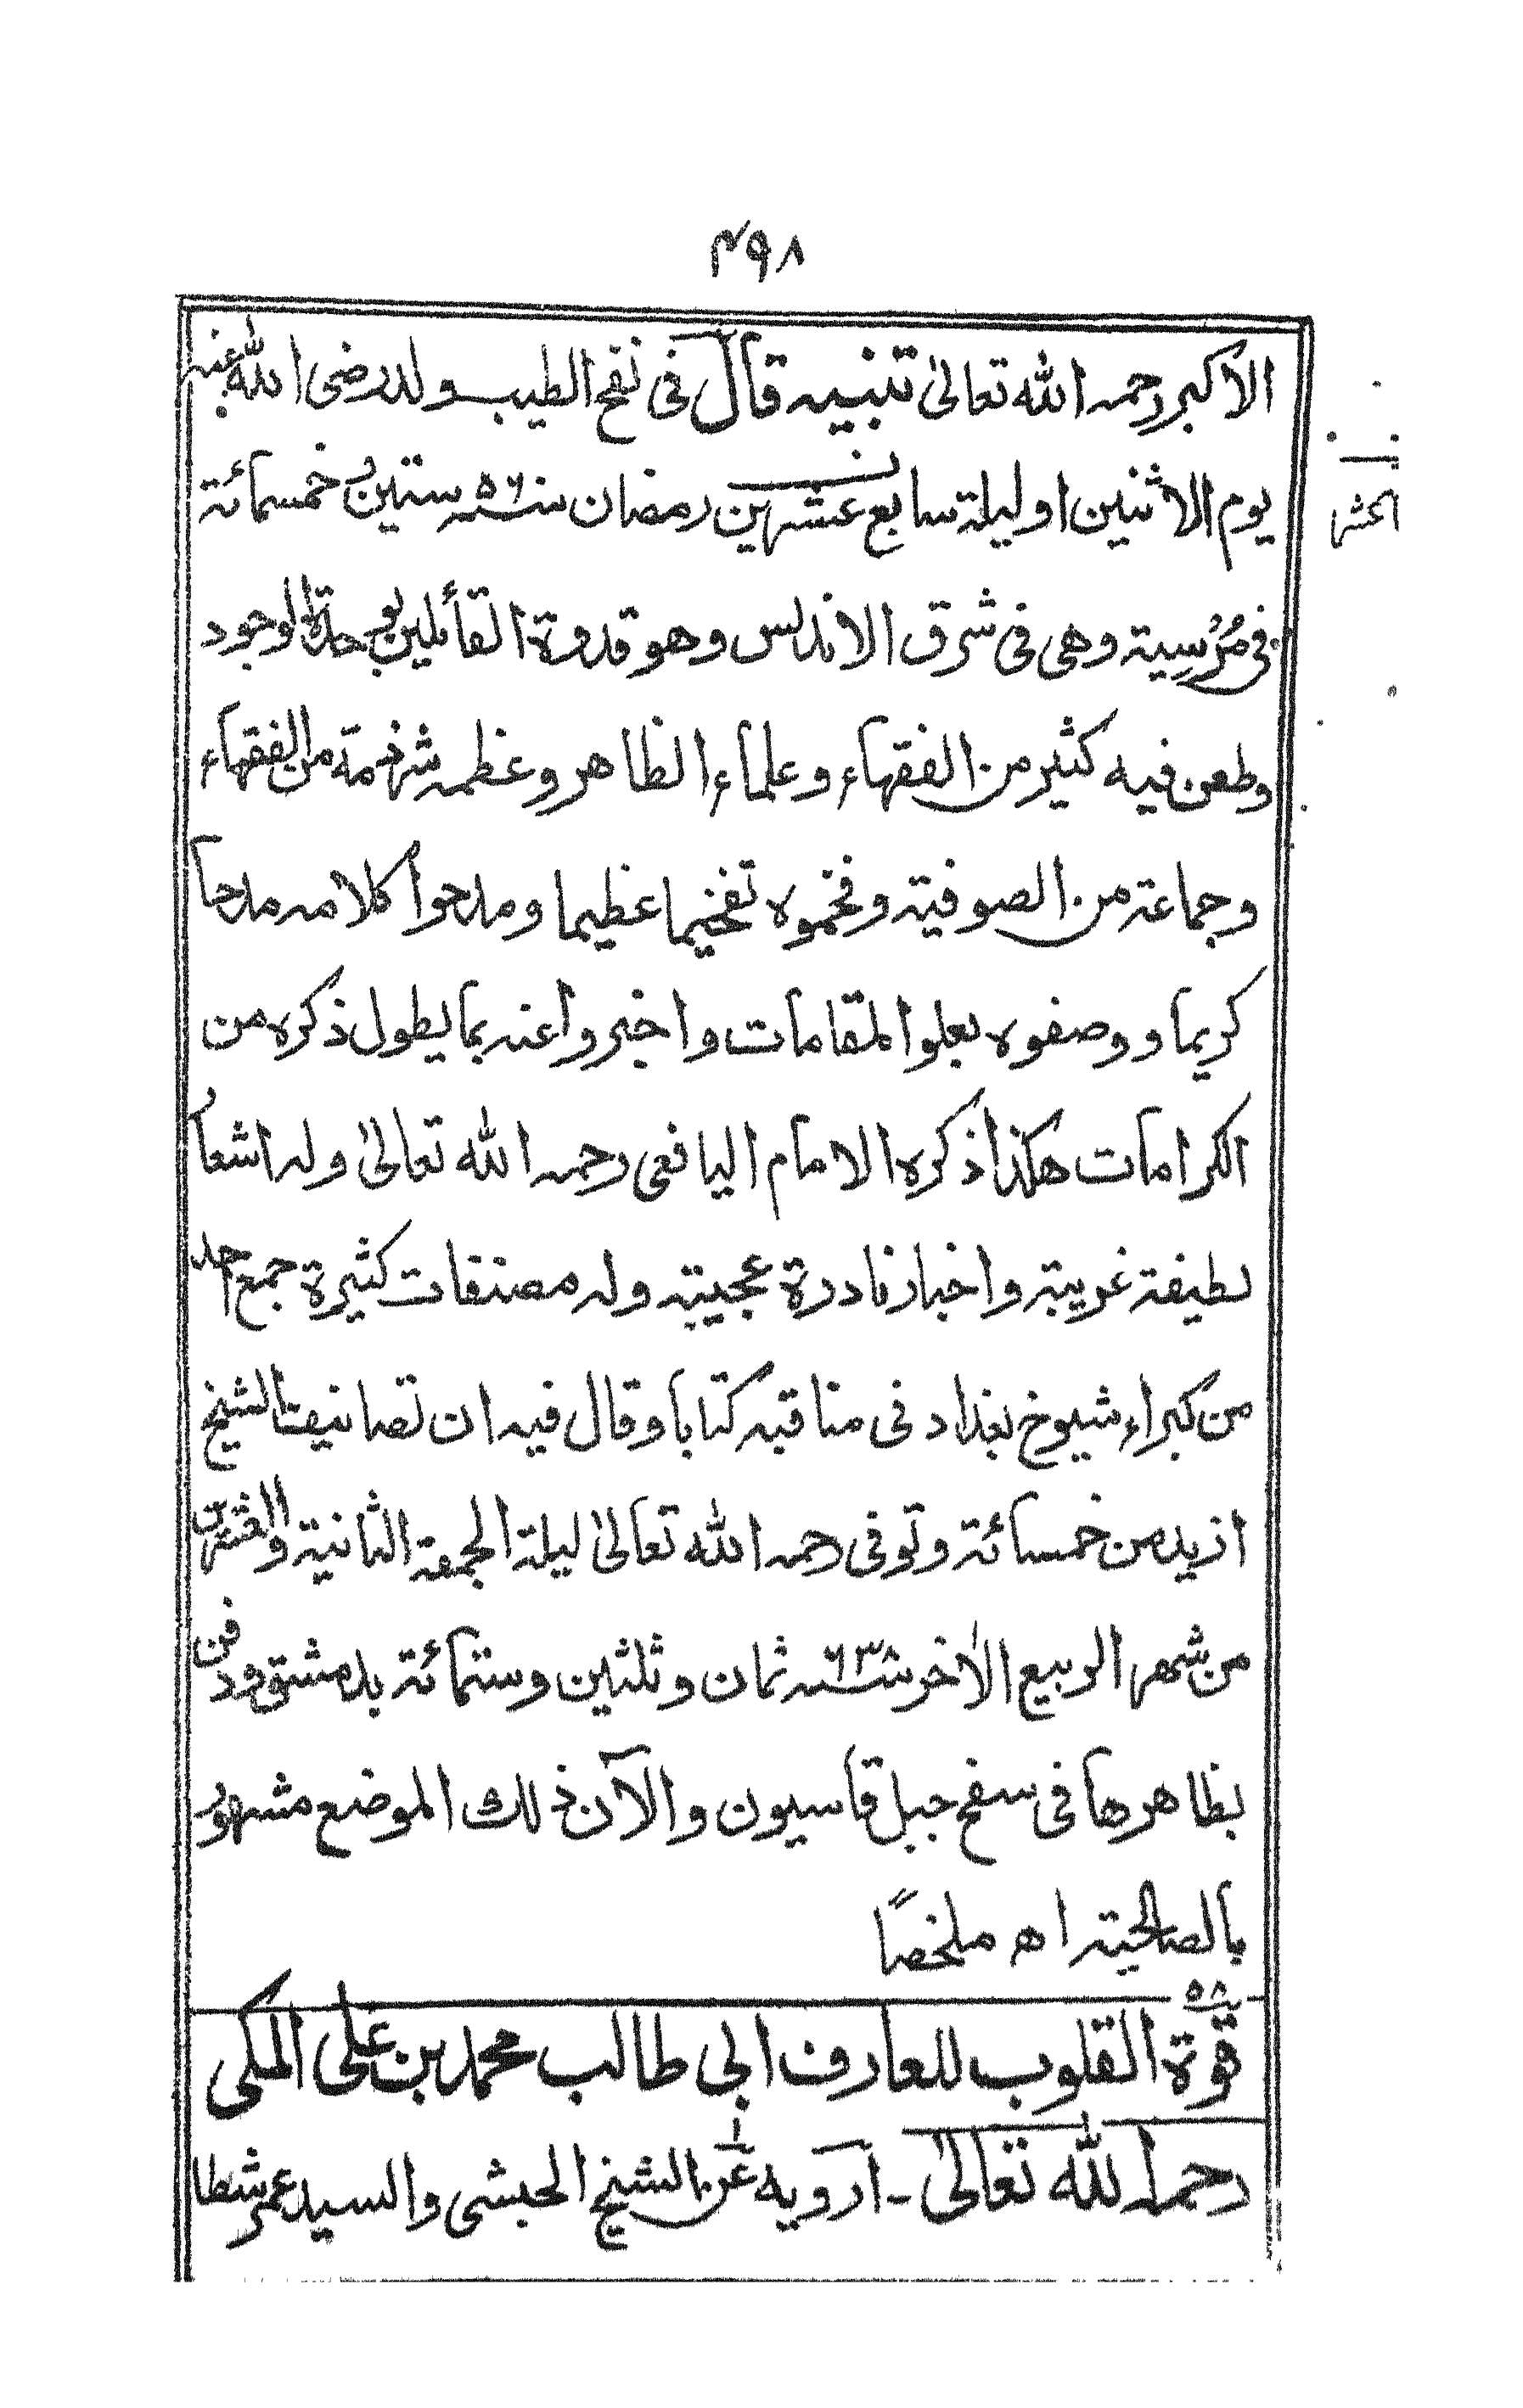 ٤٩٨
الاكبر رحمه الله تعالىٰ تنبيه قال فى نفح الطيب ولد رضى الله عنه
يوم الاثنين او ليلة سابع عشرين رمضان سنه ٥٦٠ ستين و خمسمائة
العشر
فى مُرْسِية وهى فى شرق الاندلس وهو قدوة القأئلين بوحدة الوجود
وطعن فيه كثير من الفقهاء وعلماء الظاهر وعظمه شرذمة من الفقهاء
وجماعة من الصوفية وفخموه تفخيما عظيما ومدحوا كلامه مدحا
كريما و وصفوه بعلو المقامات واخبروا عنه بما يطول ذكره من
الكرامات هكذا ذكره الامام اليافعى رحمه الله تعالىٰ وله اشعار
لطيفة غريبة واخبار نادرة عجيبة وله مصنفات كثيرة جمع احد
من كبراء شيوخ بغداد فى مناقبه كتابا وقال فيه ان تصانيف الشيخ
ازيد من خمسمائة وتوفى رحمه الله تعالىٰ ليلة الجمعة الثانية والعشرين
من شهر الربيع الاٰخر سنه ٦٣٨ ثمان وثلثين وستمائة بدمشق ودفن
بظاهرها فى سفح جبل قاسيون والآن ذلك الموضع مشهور
بالصالحية اه ملخصًا
٥٨
قوة القلوب للعارف ابى طالب محمد بن على المكى
رحمه الله تعالىٰ - ارويه عن الشيخ الحبشى والسيد عمر شطا